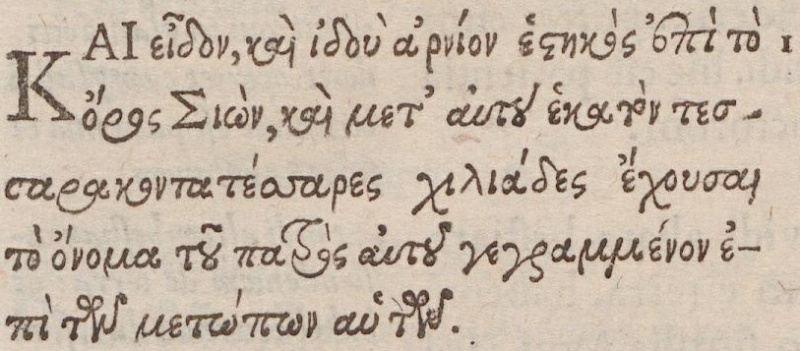 ΚΑΙ εἶδον, καὶ ἰδοὺ ἀρνίον ἑστηκὸς ἐπὶ τὸ 1
ὄρος Σιὼν, καὶ μετ' αὐτοῦ ἑκατὸν τεσ-
σαρακοντατέσσαρες χιλιάδες ἔχουσαι
τὸ ὄνομα τοῦ πατρὸς αὐτοῦ γεγραμμένον ἐ-
πὶ τῶν μετώπων αὐτῶν.